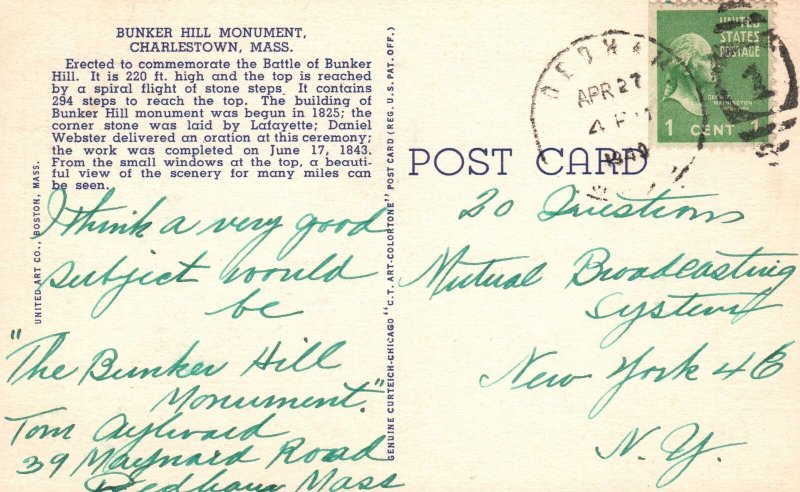 BUNKER HILL MONUMENT,
CHARLESTOWN, MASS.
Erected to commemorate the Battle of Bunker
Hill. It is 220 ft. high and the top is reached
by a spiral flight of stone steps. It contains
294 steps to reach the top. The building of
Bunker Hill monument was begun in 1825; the
corner stone was laid by Lafayette; Daniel
Webster delivered an oration at this ceremony;
the work was completed on June 17, 1843.
From the small windows at the top, a beauti-
ful view of the scenery for many miles can
be seen.
UNITED ART CO., BOSTON, MASS.
I think a very good
subject would
be
"The Bunker Hill
Monument."
Tom Aylward
39 Maynard Road
Dedham Mass
GENUINE CURTEICH-CHICAGO "C.T. ART-COLORTONE" POST CARD (REG. U.S. PAT. OFF.)
POST CARD
DEDHAM
APR 27
UNITED
STATES
POSTAGE
WASHINGTON
1 CENT 1
20 Questions
Mutual Broadcasting
System
New York 46
N.Y.